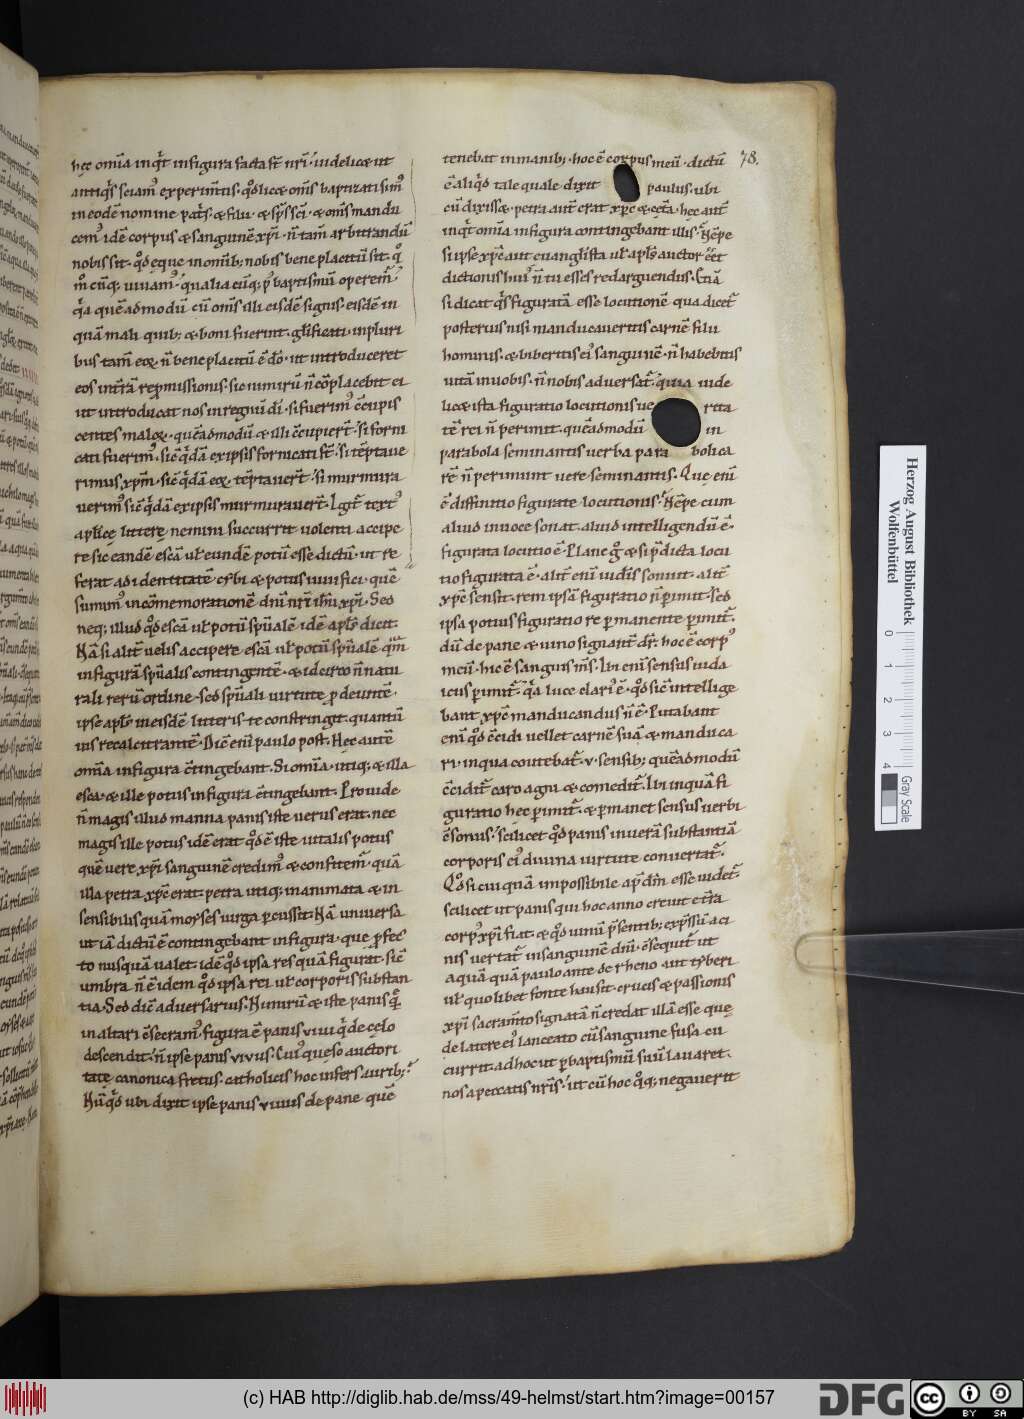 hęc om̅ia inq̅t in figura facta st̅ nr̅i. iudelicæ ut
antiqͥs sciamꝰ exꝑim̅tis. qđ licæ om̅s baptizati simꝰ
in eodē nomine patͥs. & filii. & sp̅s sc̅i. & om̅s mandu
cemꝰ idē corpus & sanguinē xp̅i. n̅ tam̅ arbitrandū
nobis sit. qđ ęque in omib; nobis bene placitū sit. qͦ
q̅a quēadmodū cū om̅s illi eisdē signis. eisdē in
quā mali quib; & boni fuerint. glīficati. in pluri
bus tam̅ eoꝝ n̅ bene placitū ē dō. ut introduceret
eos in tr̅ā repmissionis. sic nimirū n̅ cōplacebit ei
ut introducat nos in regnū di̅. si fuerimꝰ c̅cupis
centes maloꝝ. quēadmodū & illi c̅cupier̅t. si forni
cati fuerimꝰ. sic̅ q̅dā ex ipsis fornicati st̅. si tēptaue
rimus xp̅m. sic̅ q̅dā eoꝝ tēptauer̅t. si murmura
uerimꝰ sic̅ q̅dā ex ipsis murmurauer̅t. Igit̅ textꝰ
aplicę litterę nemini succurrit uolenti accipe
re sic eandē escā ul̅ eundē potū esse dictū. ut re
ferat ad identitatē cybi & potus uiuifici. quē
sumimꝰ in cōmemorationē dn̅i nr̅i ih̅u xp̅i. Sed
neq; illud qđ escā ul̅ potū sp̅ualē idē apl̅s dicit.
Nā si alit̅ uelis accipere escā ul̅ potū sp̅ualē qm̅
in figurā sp̅ualis contingentē. & idcirco n̅ natu
rali rerū ordine. sed sp̅uali uirtute ꝓdeuntē.
ipse apl̅s in eisdē litteris te constringit. quantū
uis recalcitrantē. Dic̅ eni̅ paulo post. Hęc autē
om̅ia in figura c̅tingebant. Si om̅ia. utiq; & illa
esca. & ille potus in figura c̅tingebant. Proinde
n̅ magis illud manna panis iste uerus erat. nec
magis ille potus idē erat qđ ē iste uitalis potus
quē uere xp̅i sanguinē credimꝰ & confitem̅. quā
illa petra xp̅c erat. petra utiq; inanimata & in
sensibilis quā moyses uirga ꝑcussit. Nā uniuersa
ut iā dictū ē contingebant in figura. que ꝓfec
to nusquā ualet idē qđ ipsa res quā figurat. sic̅
umbra n̅ ē idem qđ ipsa rei ul̅ corporis substan
tia. Sed dic̅ aduersarius. Nimirū & iste panis qͥ
in altari c̅secram̅. figura ē panis uiui qͥ de cęlo
descendit. n̅ ipse panis vivus. Cuiꝰ queso auctori
tate canonica fretus. catholicis hoc infers aurib;?
Nūqđ ubi dixit ipse panis vivus de pane quē
tenebat in manib;. hoc ē corpus meū. dictū
ē aliqđ tale quale dixit paulus. ubi
cū dixissæ. petra aut̅ erat xp̅c. & cęt̅a. hęc aut̅
inq̅t om̅ia in figura contingebant illis. Nēpe
si ipse xp̅c aut euangl̅ista ul̅ apl̅s auctor eēt
dictionis huiꝰ. n̅ tu esses redarguendus. Etiā
si dicat qͥs figuratā esse locutionē. qua dicet̅
posterius nisi manducaueritis carnē filii
hominis. & biberitis eiꝰ sanguinē. n̅ habebitis
uitā in uobis. n̅ nobis aduersat̅. quia uide
licæ ista figuratio locutionis ue rita
tē rei n̅ ꝑimit. quēadmodū in
parabola seminantis uerba para bolica
rē n̅ perimunt uere seminantis. Que eni̅
ē diffinitio figurate locutionis. Nēpe cum
aliud in uoce sonat. aliud intelligendū ē.
figurata locutio ē. Plane g̊ & si p̅dicta locu
tio figurata ē. alit̅ eni̅ iudęis sonuit. alit̅
xp̅c sensit. rem ipsā figuratio n̅ ꝑimit. sed
ipsa potius figuratio re ꝑmanente ꝑimit̅.
dū de pane & uino signant̅ dr̅. hoc ē corpꝰ
meū. hic ē sanguis m̅s. Ibi eni̅ sensus iuda
icus ꝑimit̅. q̅a luce clariꝰ ē. qđ sic̅ intellige
bant xp̅c manducandus n̅ ē. Putabant
eni̅ qđ c̅cidi uellet carnē suā & manduca
ri. in qua coutebat̅. v. sensib;. quēadmodū
c̅cidit̅ caro agni & comedit̅. Ibi inquā fi
guratio hęc ꝑimit̅. & ꝑmanet sensus uerbi
c̅sonus. scilicet qđ panis in uerā substantiā
corporis eiꝰ diuina uirtute conuertat̅.
Qđ si cuiquā impossibile ap̅ dm̅ esse uidet̅.
scilicet ut panis qui hoc anno creuit e tr̅a
corpꝰ xp̅i fiat. & qđ uinū p̅sentib; exp̅ssū aci
nis uertat̅ in sanguinē dn̅i. c̅sequit̅ ut
aquā quā paulo ante de rheno aut tyberi
ul̅ quolibet fonte hausit. crucis & passionis
xp̅i sacram̅to signatā n̅ credat illā esse que
de latere eiꝰ lanceato cū sanguine fusa cu
currit. ad hoc ut ꝑ baptismū suū lauaret.
nos a peccatis nr̅is. ut cū hoc qͦq; negauerit
78.
Herzog August Bibliothek
Wolfenbüttel
0 1 2 3 4
Gray Scale
(c) HAB http://diglib.hab.de/mss/49-helmst/start.htm?image=00157
DFG
cc BY SA